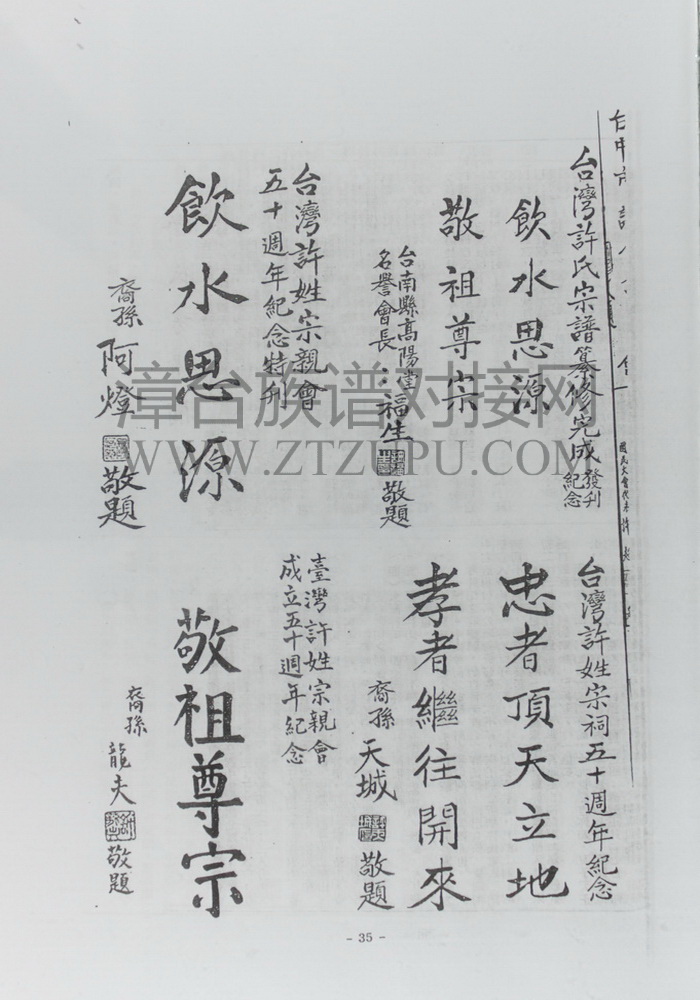 台灣許氏宗譜纂修完成發刊紀念
飲水思源
敬祖尊宗
台南縣高陽堂
名譽會長：福生敬題
台灣許姓宗親會
五十週年紀念特刊
飲水思源
裔孫阿燈敬題
台灣許姓宗祠五十週年紀念
忠者頂天立地
孝者繼往開來
裔孫天城敬題
臺灣許姓宗親會
成立五十週年紀念
敬祖尊宗
裔孫龍夫敬題
國民大會代表許
漳台族谱对接网
WWW.ZTZUPU.COM
- 35 -